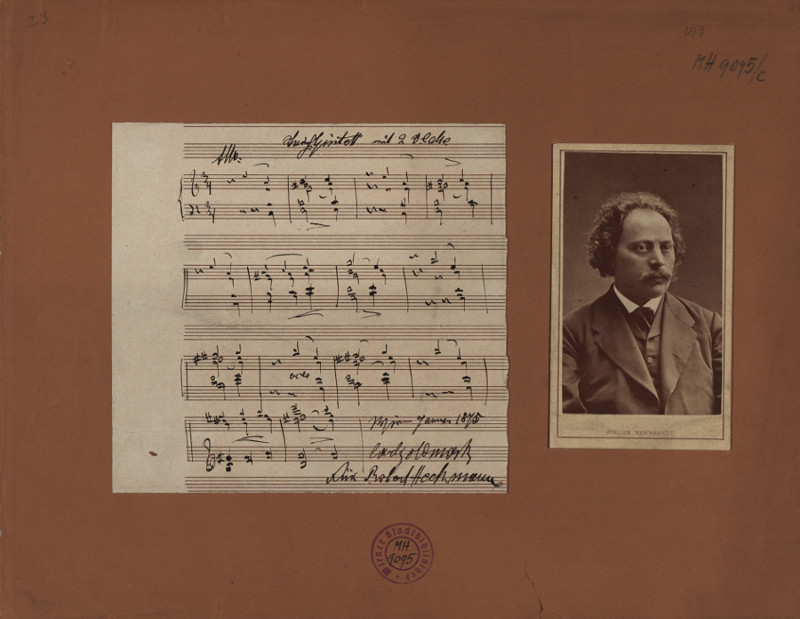 23
MH 9095/c
mit 2 Celli
Allo.
Wien Januar 1875
Carl Goldmark
Für Robert Heckmann
ATELIER
Wiener Stadtbibliothek
MH
9095